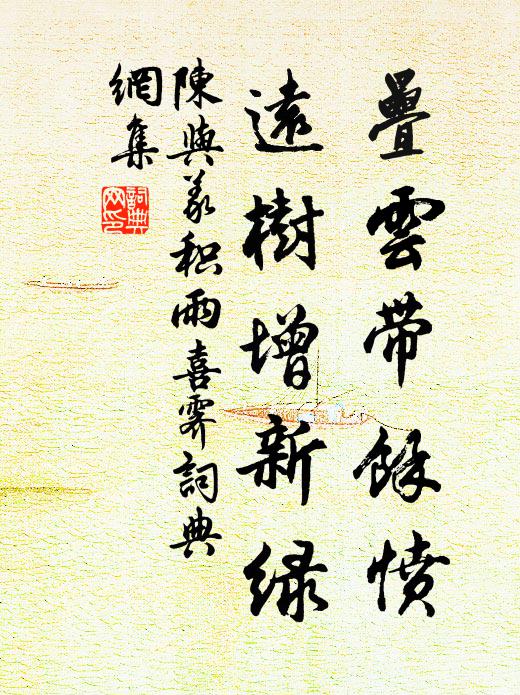 疊雲帶餘憤
遠樹增新綠
陳與義积雨喜霽詞典
網集
詞典
网印